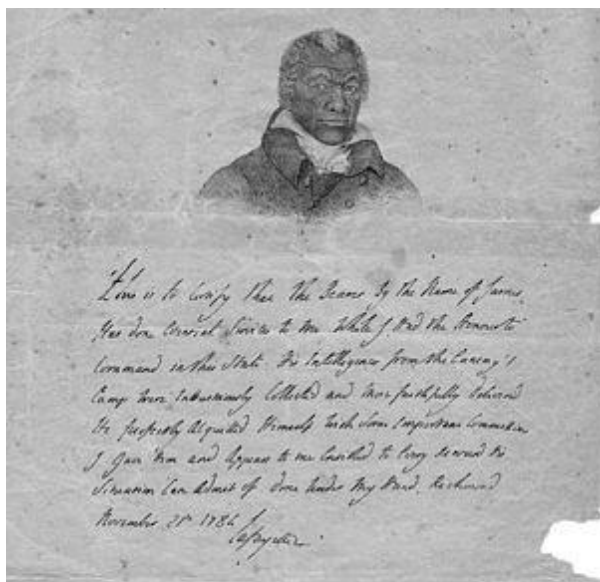 This is to Certify that the Bearer By the Name of James
Has done Essential Services to me While I Had the Honour to
Command in this State. His Intelligences from the Ennemy's
Camp were Industriously Collected and More faithfully deliverd
He perfectly Acquitted Himself with Some Important Commissions
I Gave Him and Appears to me Entitled to Every Reward his
Situation Can Admit of. Done Under My Hand, Richmond
November 21st 1784
Lafayette